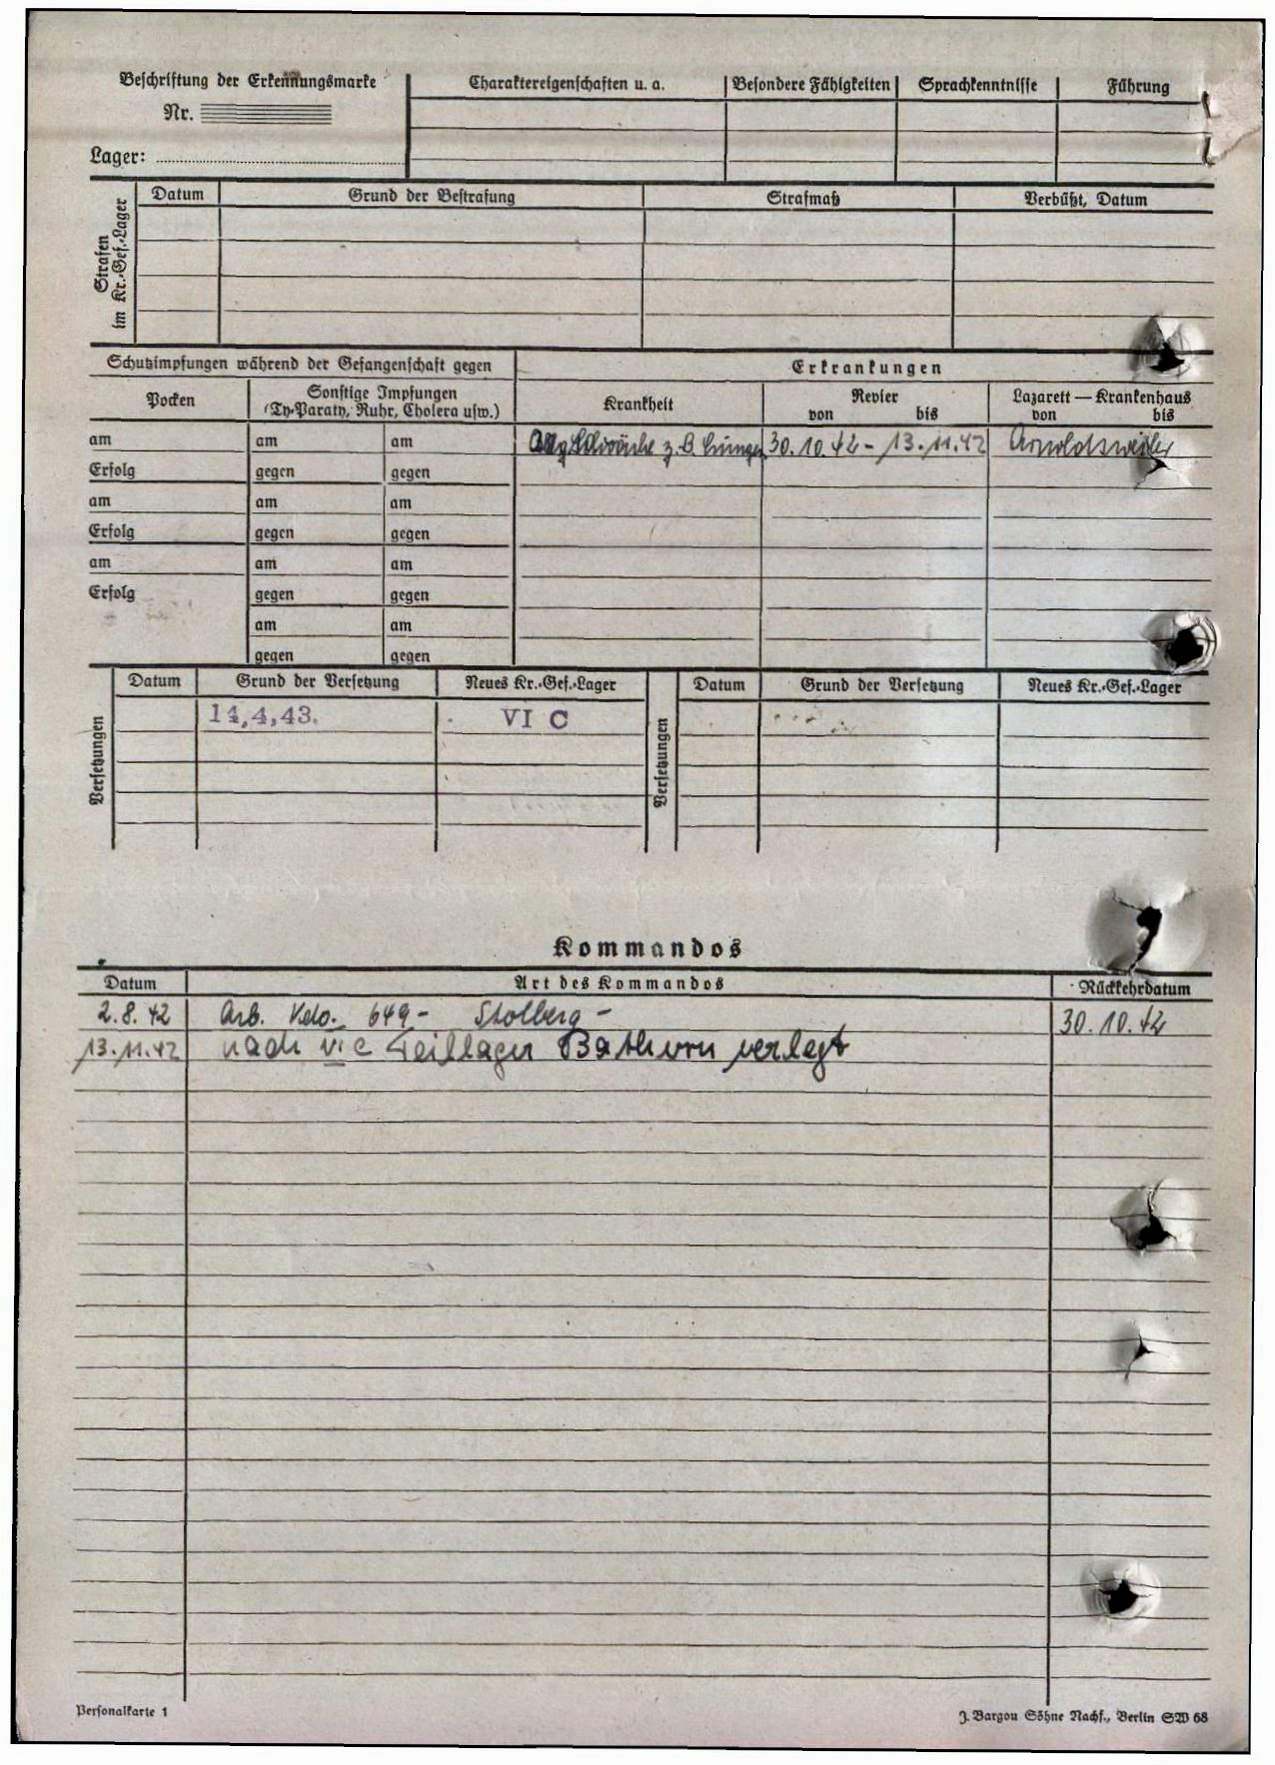 Beschriftung der Erkennungsmarke
Nr.
Lager:
Charaktereigenschaften u. a. Besondere Fähigkeiten Sprachkenntnisse Führung
Strafen im Kr.-Gef.-Lager
Datum Grund der Bestrafung Strafmaß Verbüßt, Datum
Schutzimpfungen während der Gefangenschaft gegen Erkrankungen
Pocken Sonstige Impfungen (Ty-Paraty, Ruhr, Cholera usw.) Krankheit Revier von bis Lazarett — Krankenhaus von bis
am am am Schwäche z. B. 30.10.42 - 13.11.42 Arnoldsweiler
Erfolg gegen gegen
am am am
Erfolg gegen gegen
am am am
Erfolg gegen gegen
am am
gegen gegen
Versetzungen
Datum Grund der Versetzung Neues Kr.-Gef.-Lager
14,4,43. VI C
Versetzungen
Datum Grund der Versetzung Neues Kr.-Gef.-Lager
Kommandos
Datum Art des Kommandos Rückkehrdatum
2.8.42 Arb. Kdo. 649 - Stolberg - 30.10.42
13.11.42 nach VI C Teillager Bathorn verlegt
Personalkarte 1 J. Bargou Söhne Nachf., Berlin SW 68